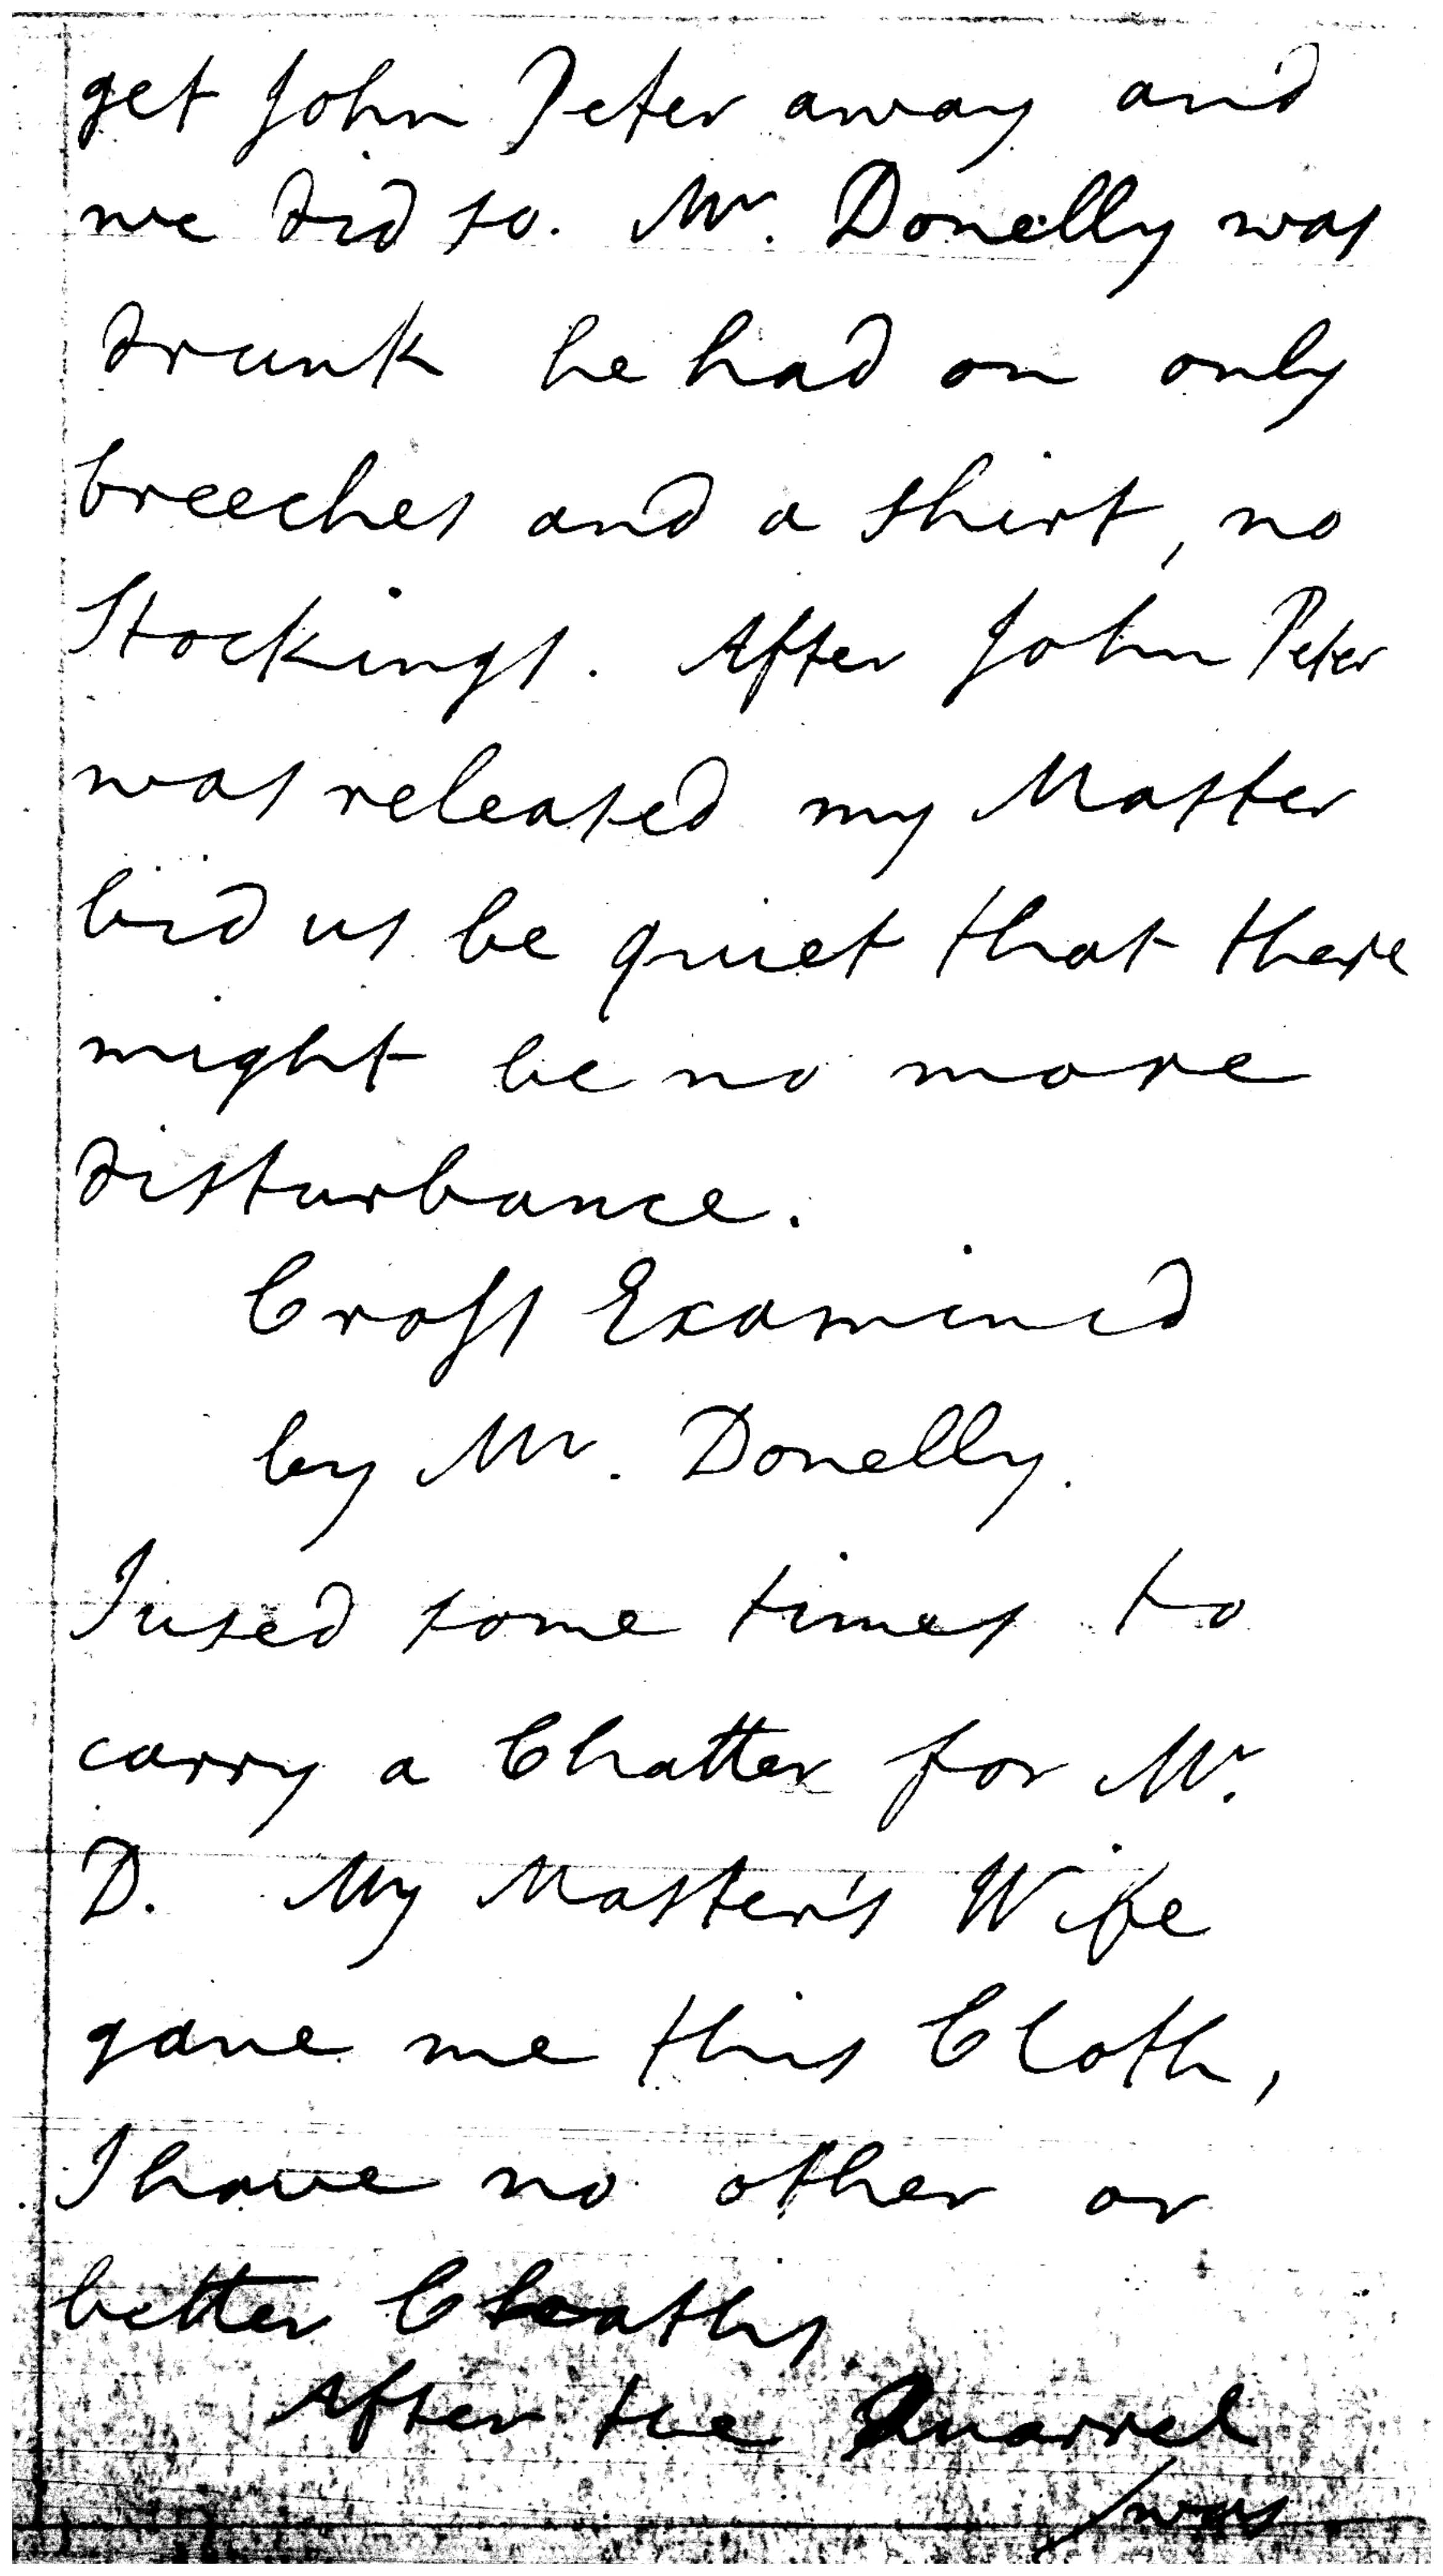 get John Peter away and
we did so. Mr. Donelly was
drunk he had on only
breeches and a shirt, no
Stockings. After John Peter
was released my Master
bid us be quiet that there
might be no more
disturbance.
Cross Examined
by Mr. Donelly.
I used some times to
carry a Chatter for Mr.
D. My Master's Wife
gave me this Cloth,
I have no other or
better Cloaths.
After the Quarrel
/was